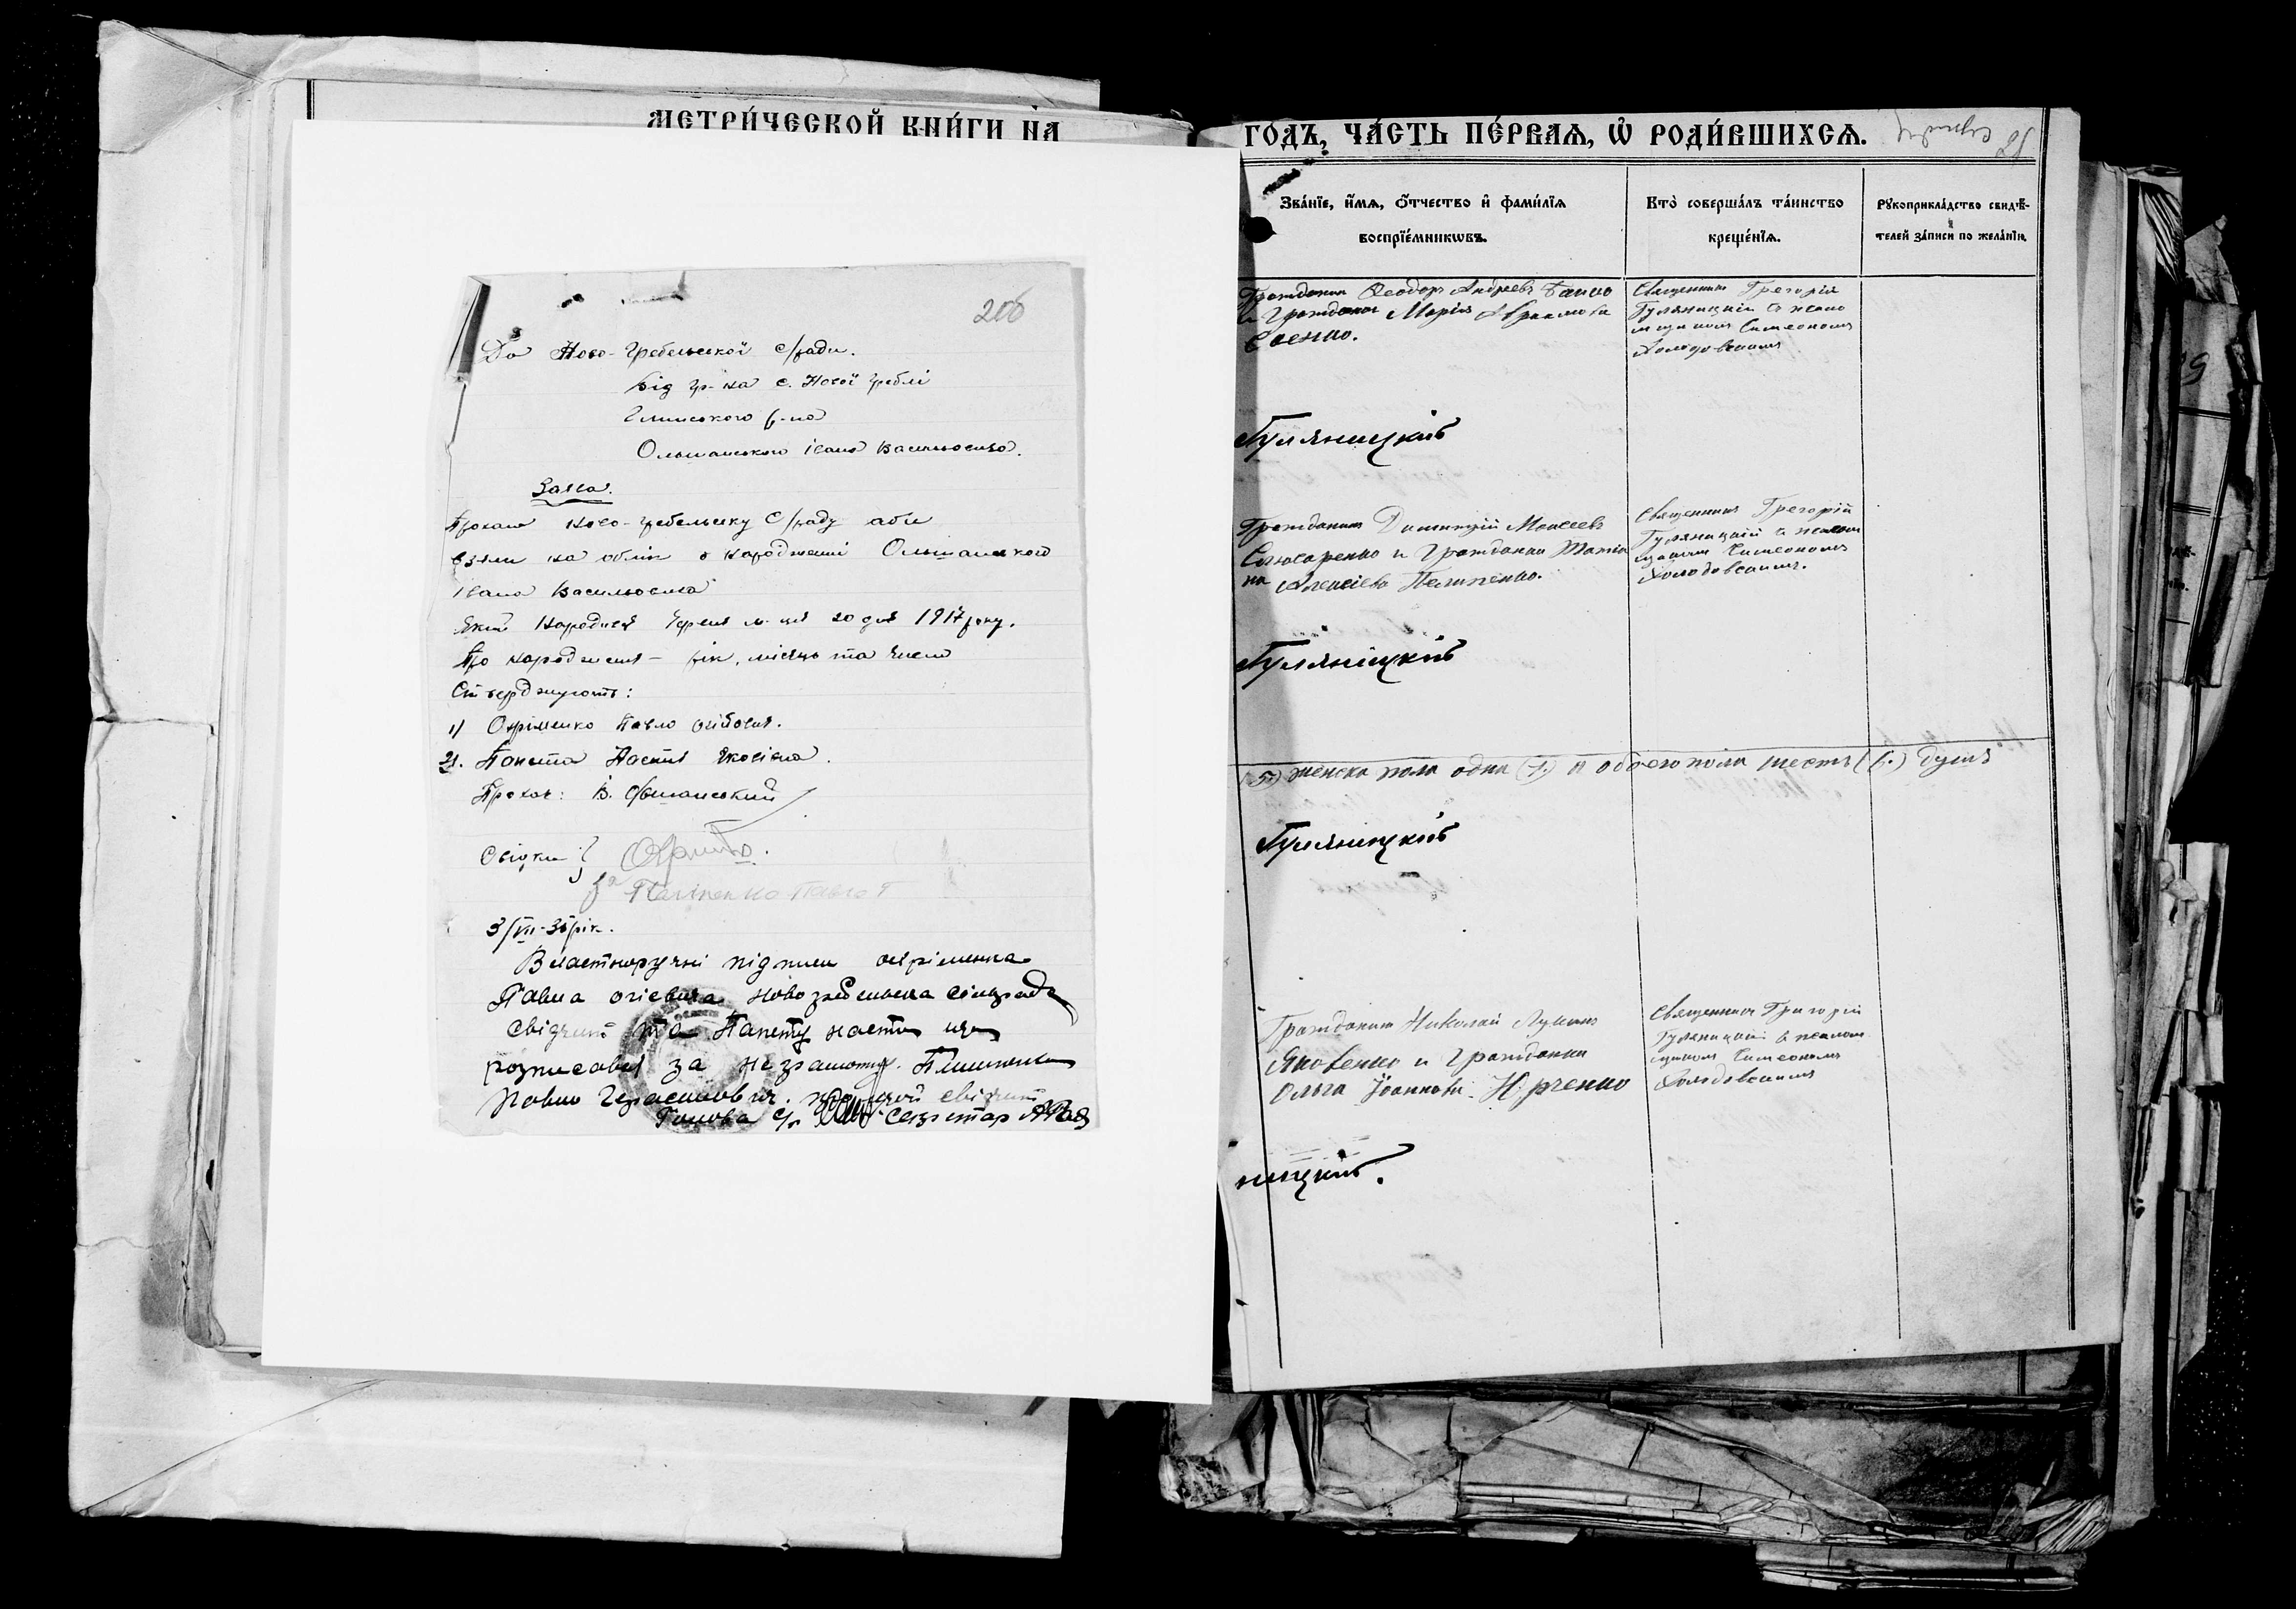 МЕТРИ́ЧЕСКОЙ КНИ́ГИ НА
20б
До Ново-Гребельської с/ради.
Від гр-на с. Нової Греблі
Глинського р-на
Ольшанського Івана Васильовича.
Заява.
Прохаю Ново-Гребельську С/раду аби
взяли на облік о народженні Ольшанського
Івана Васильовича
який народився м-ця 20 дня 1917 року.
Про народження – рік, місяць та число
Стверджують:
1) Охріменко Павло
2). Папета Настя
Прохач: В. Ольшанський
Свідки:
за Павло Г
3/VII-36 рік.
Власноручні підписи Охріменка
Павла Новогребельська сільрада
свідчить та Папету Настю
розписався за неграмотну.
Павло Герасимович. свідчить
Голова С/р Секретар
ГО́ДЪ, ЧА́СТЬ ПЕ́РВАЯ, Ѡ҆ РОДИ́ВШИХСЯ.
ЗВА́НЇЕ, И҆́МЯ, Ѻ҆́ТЧЕСТВО И҆ ФАМИ́ЛЇЯ
ВОСПРЇЕ́МНИКѠВЪ.
КТО̀ СОВЕРША́ЛЪ ТА́ИНСТВО
КРЕЩЕ́НЇЯ.
РꙊКОПРИКЛА́ДСТВО СВИДѢ́-
ТЕЛЕЙ ЗА́ПИСИ ПО ЖЕЛА́НЇЮ.
Гражданин Ѳеодоръ Андреевъ
и Гражданка Марія
Священникъ Григорій
Гуляницкій съ псалом
щикомъ Симеономъ
Холодовскимъ
Гуляницкій
Гражданинъ Димитрій Моисеевъ
Слюсаренко и Гражданка Татіа
на Алексіева Пелипенко.
Священникъ Григорій
Гуляницкій съ псалом
щикомъ Симеономъ
Холодовскимъ.
Гуляницкій
(5) женска пола одна (1.) и обоего пола шесть (6.) душъ
Гуляницкій
Гражданинъ Николай Лукинъ
Яковенко и Гражданка
Ольга Іоаннова
Священникъ Григорій
Гуляницкій съ псалом
щикомъ Симеономъ
Холодовскимъ
ницкій.